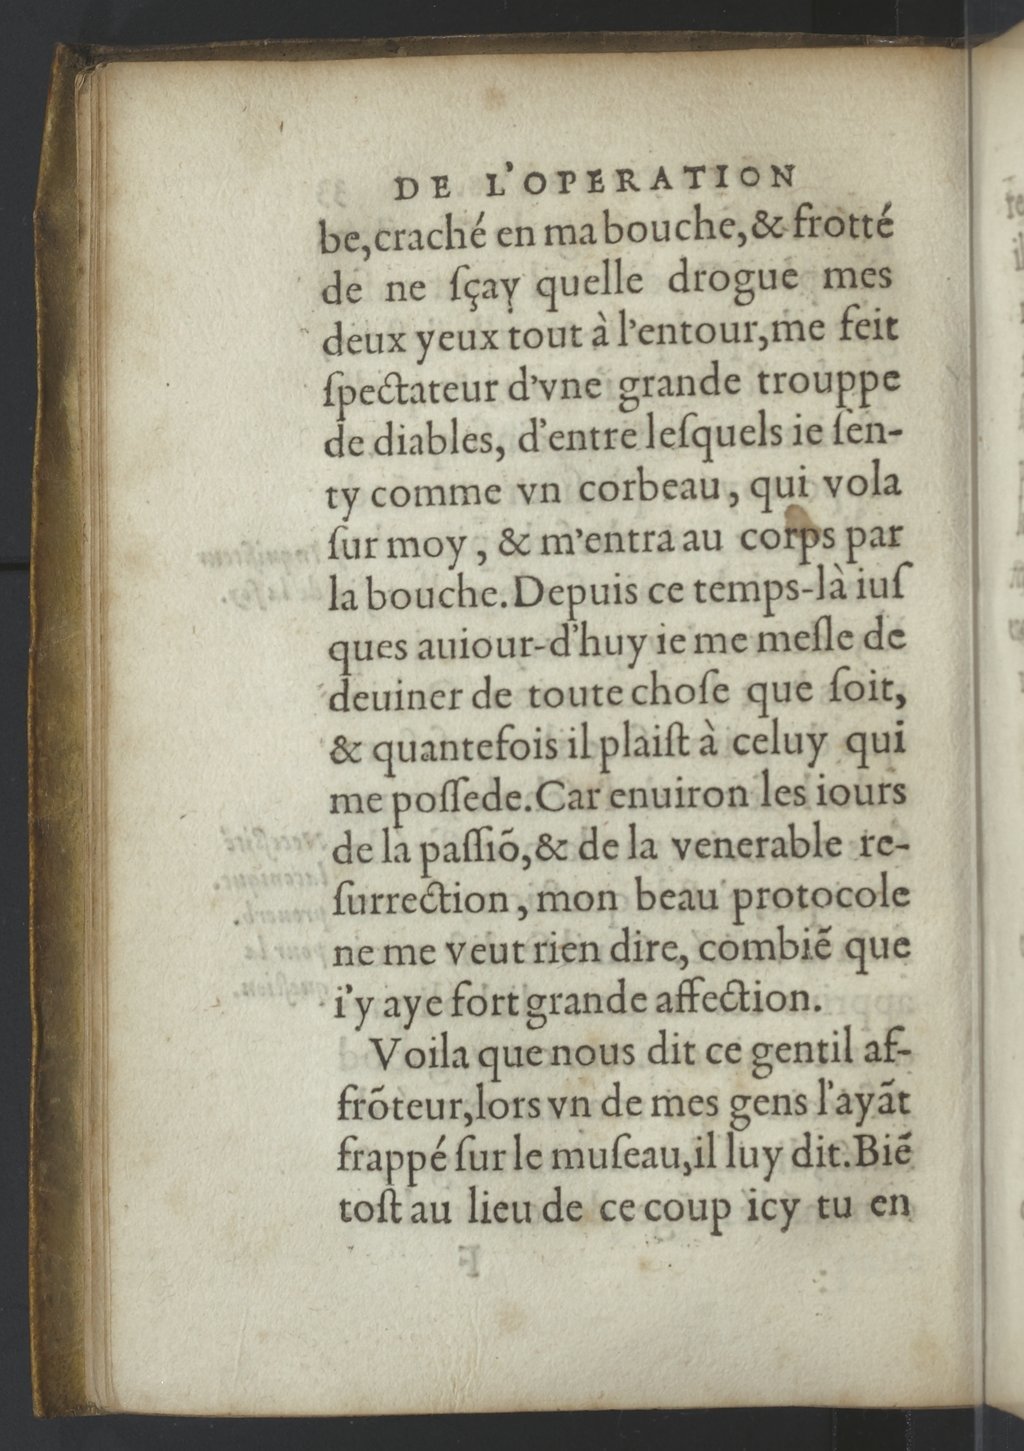 DE L'OPERATION
be, craché en ma bouche, & frotté
de ne ſçay quelle drogue mes
deux yeux tout à l'entour, me feit
ſpectateur d'vne grande trouppe
de diables, d'entre leſquels ie ſen-
ty comme vn corbeau, qui vola
ſur moy, & m'entra au corps par
la bouche. Depuis ce temps-là iuſ
ques auiour-d'huy ie me meſle de
deuiner de toute choſe que ſoit,
& quantefois il plaiſt à celuy qui
me poſſede. Car enuiron les iours
de la paſſiõ, & de la venerable re-
ſurrection, mon beau protocole
ne me veut rien dire, combiẽ que
i'y aye fort grande affection.
Voila que nous dit ce gentil af-
frõteur, lors vn de mes gens l'ayãt
frappé ſur le muſeau, il luy dit. Biẽ
toſt au lieu de ce coup icy tu en